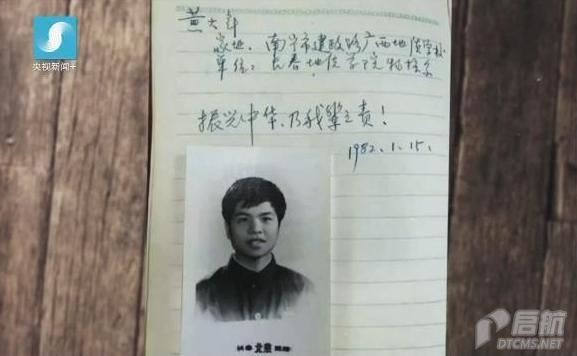 黄大年
家地: 南宁市建政路广西地质学校
单位: 长春地质学院物探系
振兴中华,乃我辈之责!
1982.1.15.
北京
央视新闻+
启航
DTCMS.NET